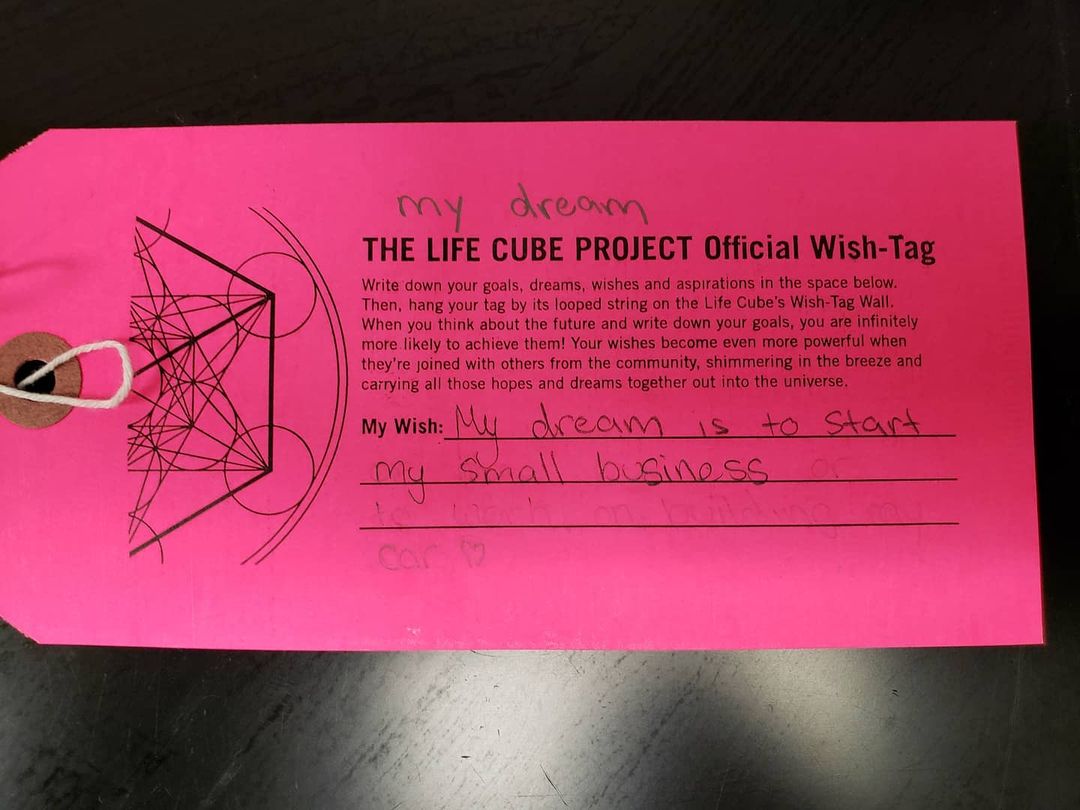 my dream
THE LIFE CUBE PROJECT Official Wish-Tag
Write down your goals, dreams, wishes and aspirations in the space below.
Then, hang your tag by its looped string on the Life Cube's Wish-Tag Wall.
When you think about the future and write down your goals, you are infinitely
more likely to achieve them! Your wishes become even more powerful when
they're joined with others from the community, shimmering in the breeze and
carrying all those hopes and dreams together out into the universe.
My Wish: My dream is to start
my small business or
to work on building my
car ♡